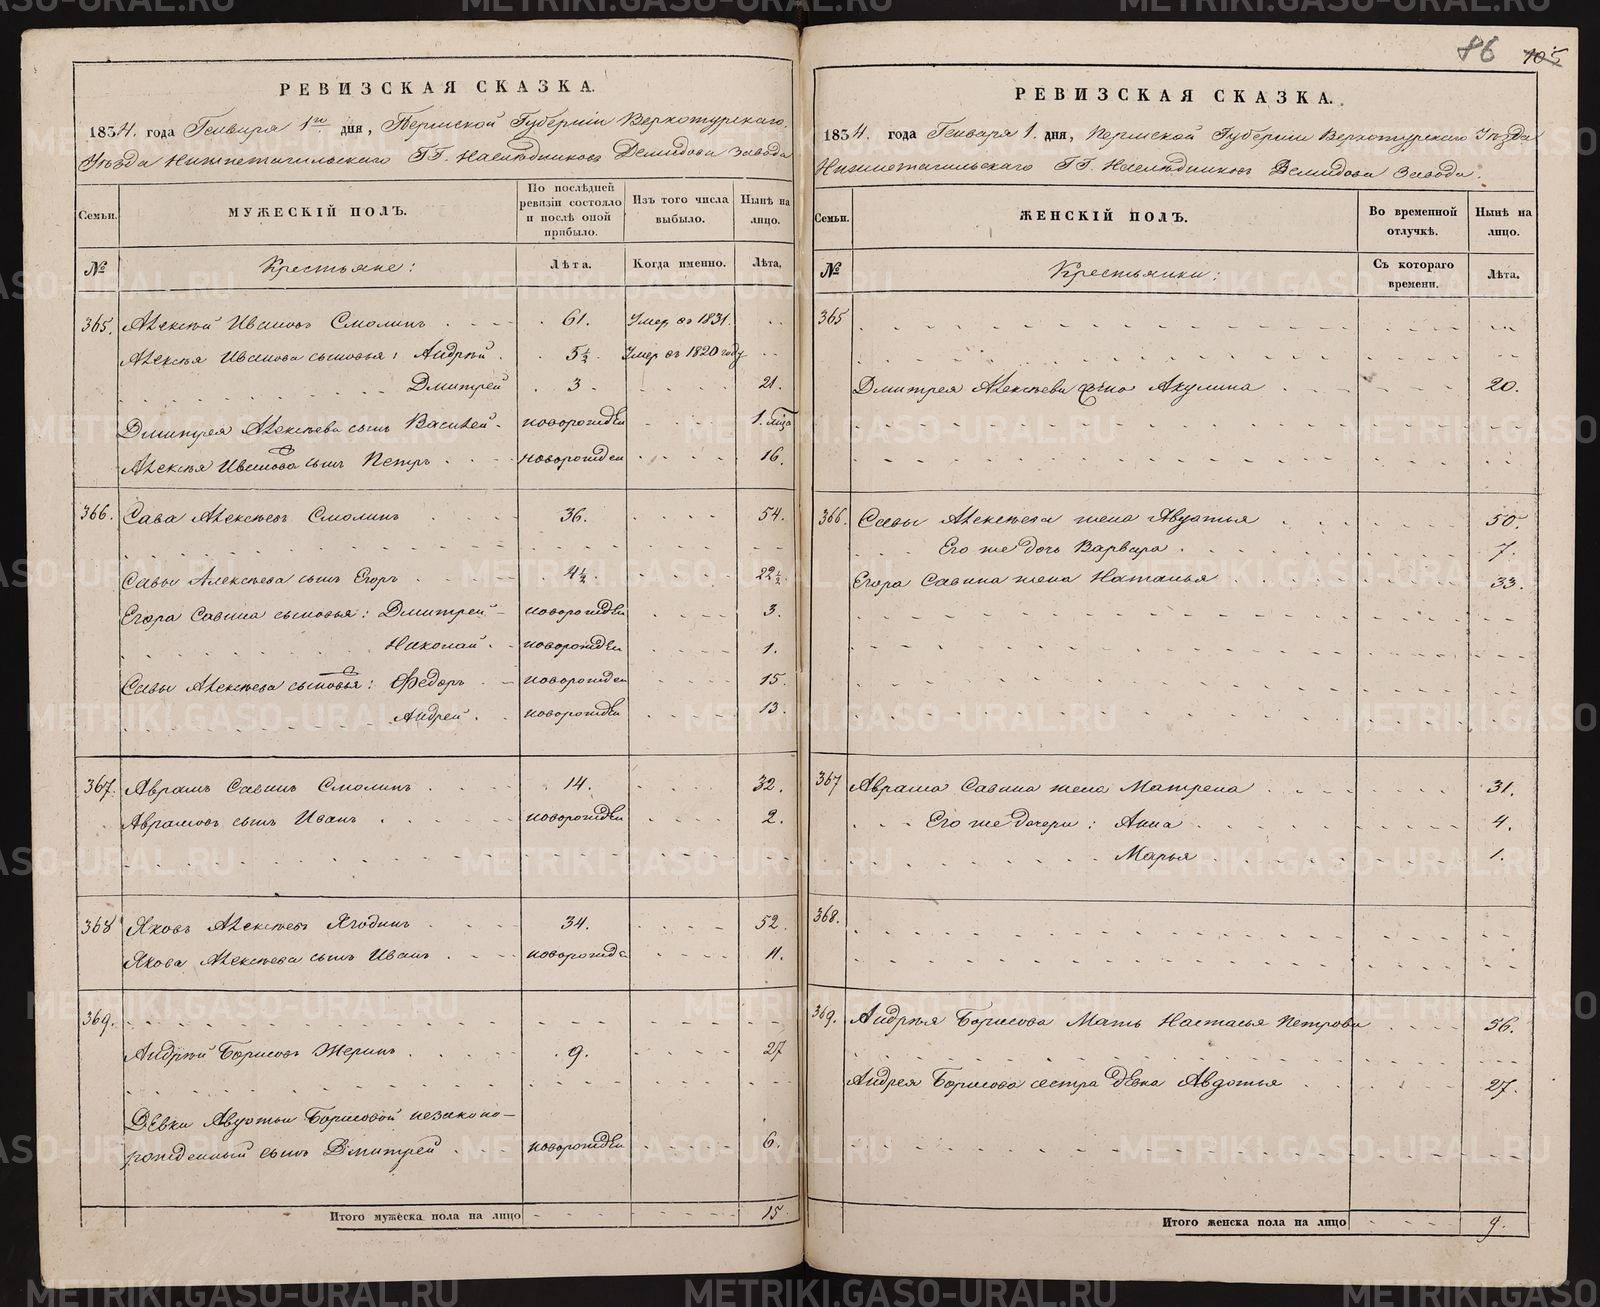 РЕВИЗСКАЯ СКАЗКА.
1834. года Генваря 1го дня, Пермской Губерніи Верхотурскаго
Уѣзда Нижнетагильскаго ГГ. Наслѣдниковъ Демидова Завода
Семьи.
МУЖЕСКІЙ ПОЛЪ.
По послѣдней ревизіи состояло и послѣ оной прибыло.
Изъ того числа выбыло.
Нынѣ на лицо.
№ Крестьяне: Лѣта. Когда именно. Лѣта.
365. Алексѣй Ивановъ Смолинъ 61. Умер въ 1831.
Алексѣя Иванова сыновья: Андрей 5½. Умер въ 1820 году
Дмитрей 3. 21.
Дмитрея Алексѣева сынъ Василей новорожден 1. мѣс
Алексѣя Иванова сынъ Петръ новорожден 16.
366. Сава Алексѣевъ Смолинъ 36. 54.
Савы Алексѣева сынъ Егоръ 4½. 22½.
Егора Савина сыновья: Дмитрей новорожден 3.
Николай новорожден 1.
Савы Алексѣева сыновья: Федоръ новорожден 15.
Андрей новорожден 13.
367. Аврамъ Савинъ Смолинъ 14. 32.
Аврамовъ сынъ Иванъ новорожден 2.
368 Яковъ Алексѣевъ Ягодинъ 34. 52.
Якова Алексѣева сынъ Иванъ новорожде 11.
369.
Андрѣй Борисовъ 9. 27
Дѣвки Авдотьи Борисовой незаконо-
рожденный сынъ Дмитрей новорожден 6.
Итого мужеска пола на лицо 15.
86 105
РЕВИЗСКАЯ СКАЗКА.
1834. года Генваря 1. дня, Пермской Губерніи Верхотурскаго Уѣзда
Нижнетагильскаго ГГ. Наслѣдниковъ Демидова Завода.
Семьи.
ЖЕНСКІЙ ПОЛЪ.
Во временной отлучкѣ.
Нынѣ на лицо.
№ Крестьянки: Съ котораго времени. Лѣта.
365
Дмитрея Алексѣева жена Акулина 20.
366. Савы Алексѣева жена Авдотья 50.
Его же дочь Варвара 7.
Егора Савина жена Наталья 33.
367 Аврама Савина жена Матрена 31.
Его же дочери: Анна 4.
Марья 1.
368.
369. Андрѣя Борисова Мать Настасья Петрова 56.
Андрея Борисова сестра дѣвка Авдотья 27.
Итого женска пола на лицо 9.
METRIKI.GASO-URAL.RU